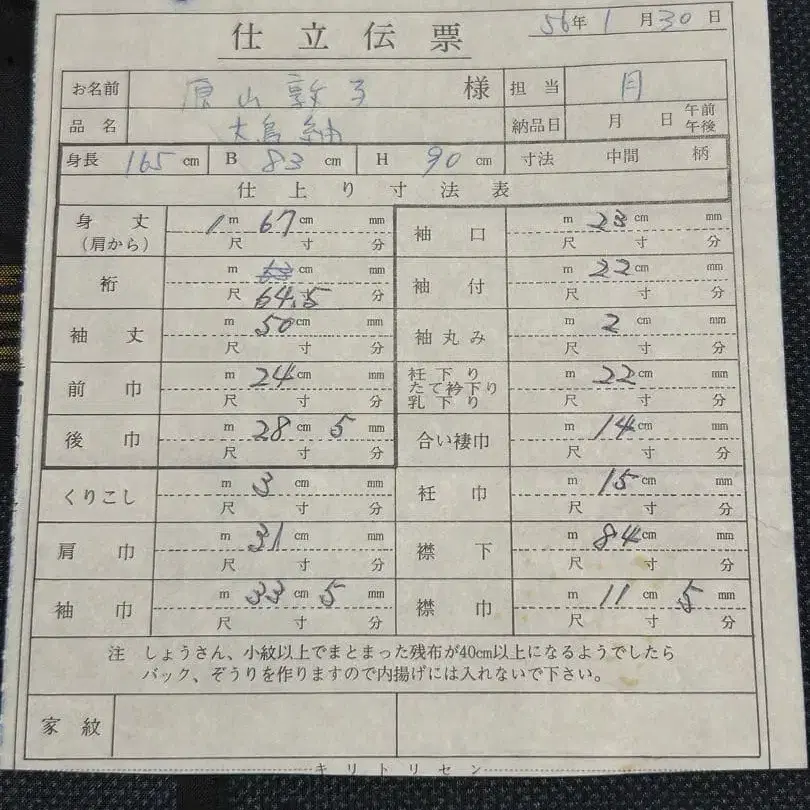 仕立伝票
56年 1月30日
お名前 原山敦子 様 担当 月
品名 大島紬 納品日 月 日 午前 午後
身長 165 cm B 83 cm H 90 cm 寸法 中間 柄
仕上り寸法表
身丈(肩から) 1 m 67 cm mm 尺 寸 分
袖口 m 23 cm mm 尺 寸 分
裄 m 63 cm mm 尺 64.5 寸 分
袖付 m 22 cm mm 尺 寸 分
袖丈 m 50 cm mm 尺 寸 分
袖丸み m 2 cm mm 尺 寸 分
前巾 m 24 cm mm 尺 寸 分
衽下り たて衿下り 乳下り m 22 cm mm 尺 寸 分
後巾 m 28 cm 5 mm 尺 寸 分
合い褄巾 m 14 cm mm 尺 寸 分
くりこし m 3 cm mm 尺 寸 分
衽巾 m 15 cm mm 尺 寸 分
肩巾 m 31 cm mm 尺 寸 分
襟下 m 84 cm mm 尺 寸 分
袖巾 m 33 cm 5 mm 尺 寸 分
襟巾 m 11 cm 5 mm 尺 寸 分
注 しょうさん、小紋以上でまとまった残布が40cm以上になるようでしたら
バック、ぞうりを作りますので内揚げには入れないで下さい。
家紋
キリトリセン